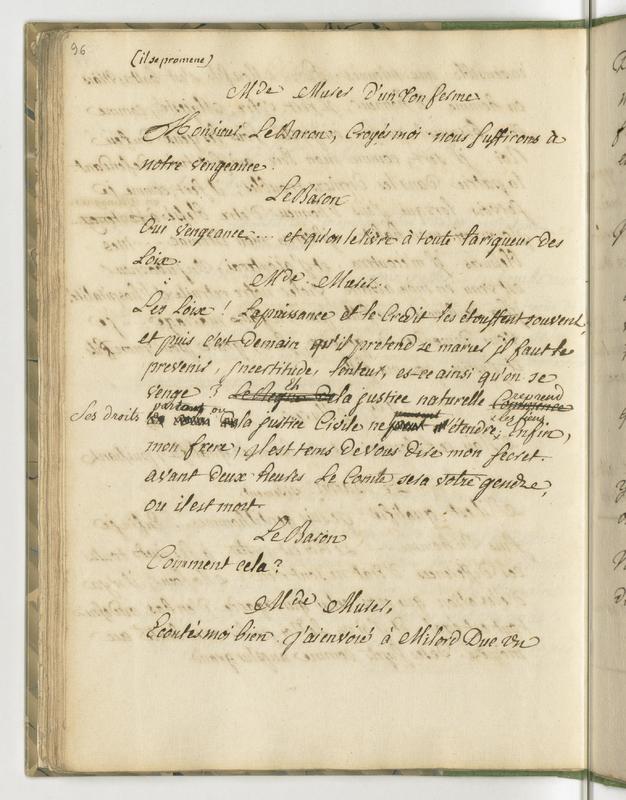 96
(il se promene)
Mde Murer d'un ton ferme
Monsieur Le Baron, Croyés moi nous suffirons à
notre vengeance.
Le Baron
Oui vengeance .... et qu'on le livre à toute la rigueur des
Loix.
Mde Murer.
Les Loix ! La puissance et le Credit les étouffent souvent,
et puis c'est demain qu'il pretend se marier il faut le
prevenir, incertitude, lenteur, est-ce ainsi qu'on se
venge ? eh la justice naturelle reprend
Ses droits partout ou la justice Civile ne peuvent s'étendre, les siens; Enfin,
mon frere, il est tems de vous dire mon secret.
avant deux heures Le Comte sera votre gendre,
ou il est mort
Le Baron
Comment cela ?
Mde Murer,
Ecoutés moi bien. J'ai envoié à Milord Duc un